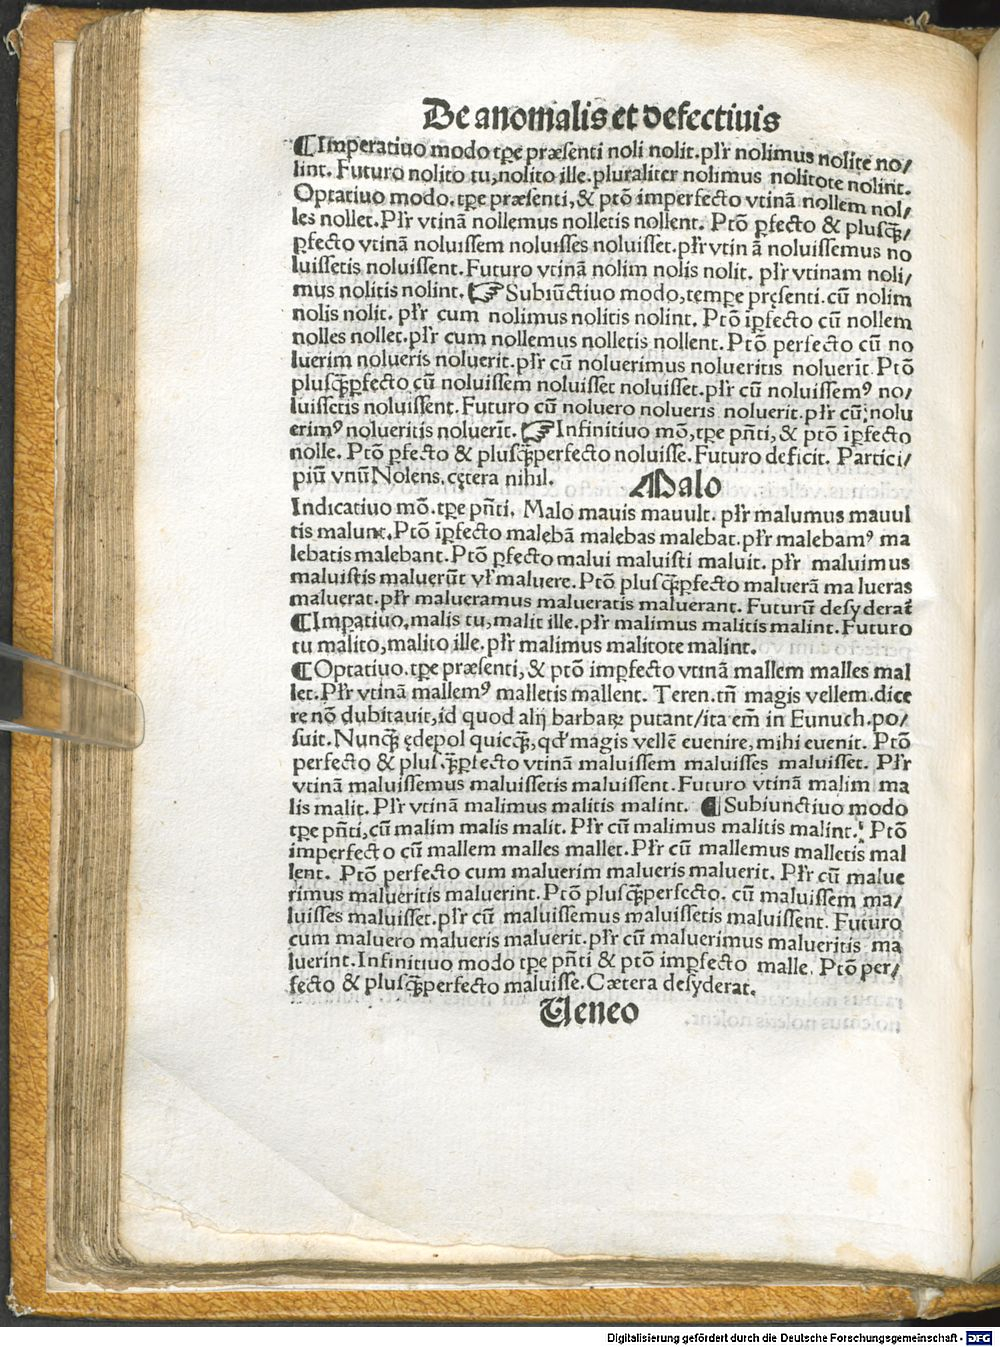 De anomalis et defectiuis
¶Imperatiuo modo tꝑe præsenti noli nolit.pl̄r nolimus nolite no/
lint. Futuro nolito tu,nolito ille.pluraliter nolimus nolitote nolint.
Optatiuo modo.tꝑe præsenti,& ptō imperfecto vtinā nollem nol/
les nollet.Pl̄r vtinā nollemus nolletis nollent. Ptō ꝑfecto & plusꝗ̄/
ꝑfecto vtinā noluissem noluisses noluisset.pl̄r vtin ā noluissemus no
luissetis noluissent.Futuro vtinā nolim nolis nolit. pl̄r vtinam noli/
mus nolitis nolint. ☞Subiūctiuo modo,tempe pręsenti.cū nolim
nolis nolit. pl̄r cum nolimus nolitis nolint. Ptō īꝑfecto cū nollem
nolles nollet.pl̄r cum nollemus nolletis nollent. Ptō perfecto cū no
luerim nolueris noluerit.pl̄r cū noluerimus nolueritis noluerīt.Ptō
plusꝗ̄ꝑfecto cū noluissem noluisset noluisset.pl̄r cū noluissemꝰ no/
luissetis noluissent.Futuro cū noluero nolueris noluerit.pl̄r cū nolu
erimꝰ nolueritis noluerīt. ☞Infinitiuo mō,tꝑe pn̄ti,& ptō īꝑfecto
nolle. Ptō ꝑfecto & plusꝗ̄perfecto noluisse.Futuro deficit. Partici/
piū vnū Nolens.cętera nihil. Malo
Indicatiuo mō.tꝑe pn̄ti. Malo mauis mauult. pl̄r malumus mauul
tis malunt.Ptō īꝑfecto malebā malebas malebat.pl̄r malebamꝰ ma
lebatis malebant.Ptō ꝑfecto malui maluisti maluit. pl̄r maluimus
maluistis maluerūt vl̄ maluere.Ptō plusꝗ̄ꝑfecto maluerā ma lueras
maluerat.pl̄r malueramus malueratis maluerant. Futurū desyderat̄
¶Imꝑatiuo.malis tu,malit ille.pl̄r malimus malitis malint.Futuro
tu malito,malito ille.pl̄r malimus malitote malint.
¶Optatiuo.tꝑe præsenti,& ptō imꝑfecto vtinā mallem malles mal
let.Pl̄r vtinā mallemꝰ malletis mallent. Teren.tn̄ magis vellem.dice
re nō dubitauit,id quod alij barbaꝝ putant/ita em̄ in Eunuch.po/
suit.Nunꝗ̄ ędepol quicꝗ̄,qđ magis vellē euenire,mihi euenit. Ptō
perfecto & plusꝗ̄ꝑfecto vtinā maluissem maluisses maluisset. Pl̄r
vtinā maluissemus maluissetis maluissent.Futuro vtinā malim ma
lis malit. Pl̄r vtinā malimus malitis malint. ¶Subiunctiuo modo
tꝑe pn̄ti,cū malim malis malit. Pl̄r cū malimus malitis malint. Ptō
imperfecto cū mallem malles mallet.Pl̄r cū mallemus malletis mal
lent. Ptō perfecto cum maluerim malueris maluerit. Pl̄r cū malue
rimus malueritis maluerint.Ptō plusꝗ̄perfecto. cū maluissem ma/
luisses maluisset.pl̄r cū maluissemus maluissetis maluissent. Futuro
cum maluero malueris maluerit.pl̄r cū maluerimus malueritis ma
luerint.Infinitiuo modo tꝑe pn̄ti & ptō imꝑfecto malle. Ptō per/
fecto & plusꝗ̄perfecto maluisse.Cætera desyderat.
Veneo
Digitalisierung gefördert durch die Deutsche Forschungsgemeinschaft - DFG